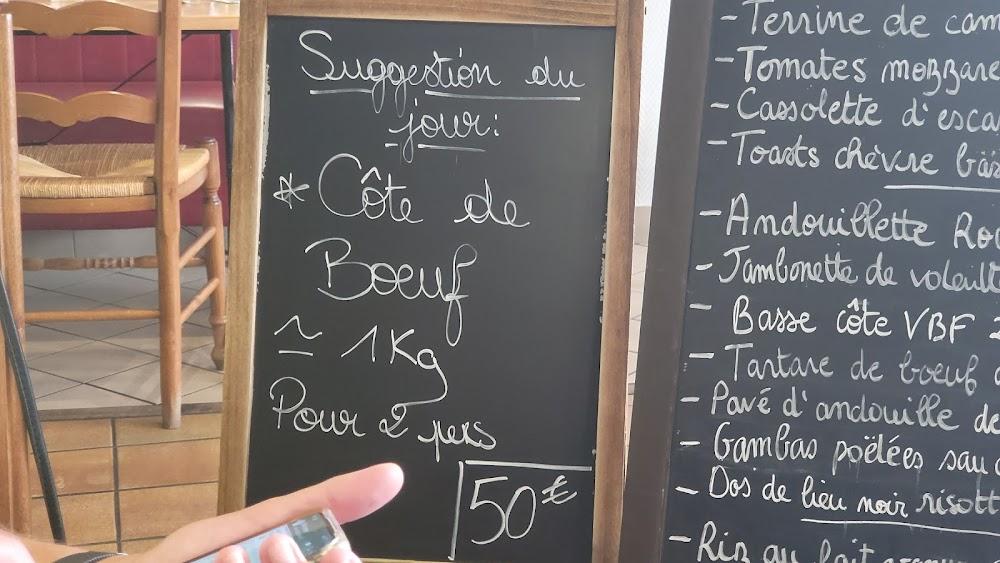 Suggestion du
jour:
* Côte de
Boeuf
≃ 1Kg
Pour 2 pers
50€
- Terrine de
- Tomates
- Cassolette
- Toasts chèvre
- Andouillette
- Jambonette de
- Basse côte VBF
- Tartare de boeuf
- Pavé d'andouille de
- Gambas poëlées
- Dos de lieu noir
- Riz au lait